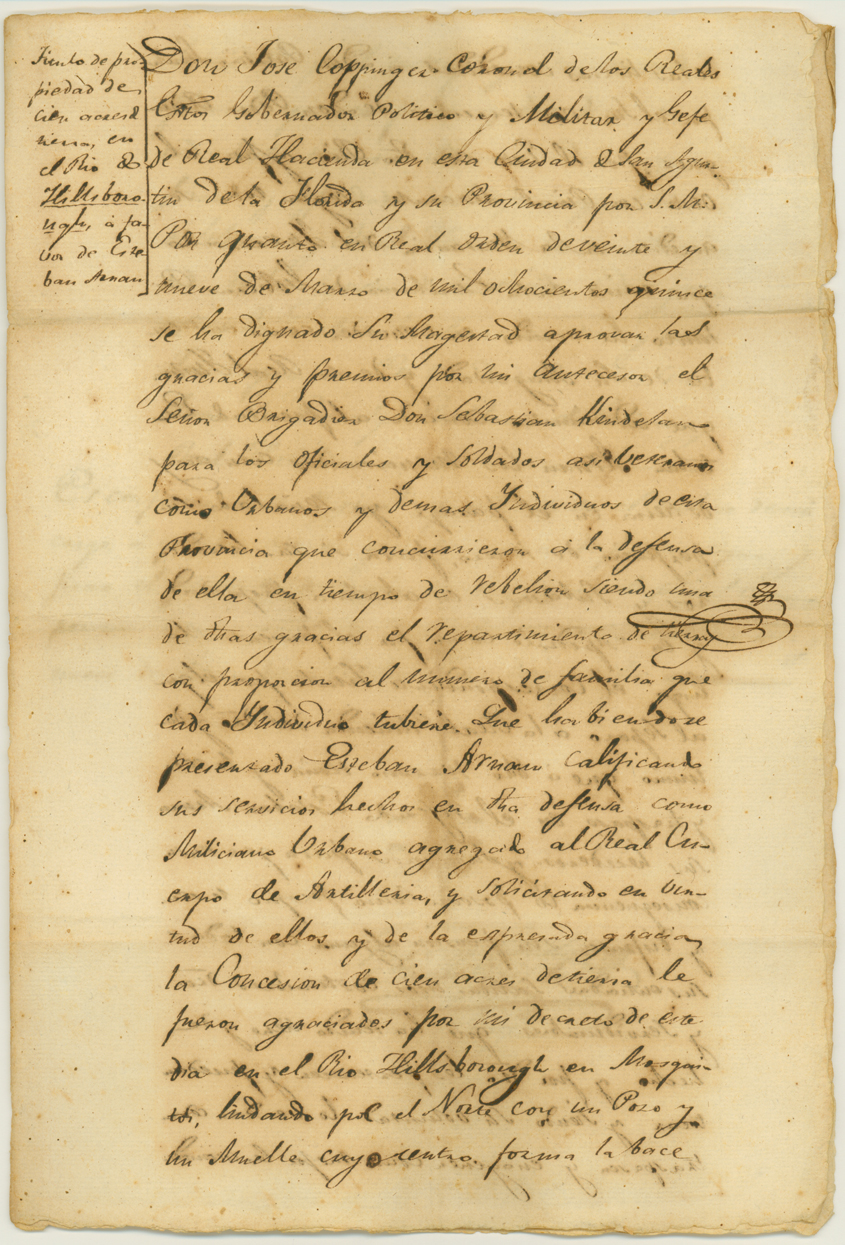 Titulo de pro-
piedad de
cien acres d
tierra, en
el Rio de
Hillsboro-
ugh, á fa-
vor de Este-
ban Arnau
Don Jose Coppinger Coronel de los Reales
Extos Gobernador Politico y Militar y Gefe
de Real Hacienda en esta Ciudad de San Agus-
tin de la Florida y su Provincia por S. M:
Por quanto en Real orden de veinte y
nueve de Marzo de mil ochocientos quince
se ha dignado Su Magestad aprovar las
gracias y premios por mi antecesor el
Señor Brigadier Don Sebastian Kindelan
para los oficiales y Soldados asi
como Urbanos y demas Individuos de esta
Provincia que concurrieron á la defensa
de ella en tiempo de rebelion siendo una
de dhas gracias el repartimiento de tierras
con proporcion al numero de familia que
cada Individuo tubiere. Que habiendose
presentado Esteban Arnau calificando
sus servicios hechos en dha defensa como
Miliciano Urbano agregado al Real Cu-
erpo de Artilleria, y solicitando en vir-
tud de ellos y de la expresada gracia,
la Concesion de cien acres de tierra le
fueron agraciados por mi decreto de este
dia en el Rio Hillsborough en Mosqui-
tos, lindando por el Norte con un Pozo y
un Muelle cuyo centro forma la bace